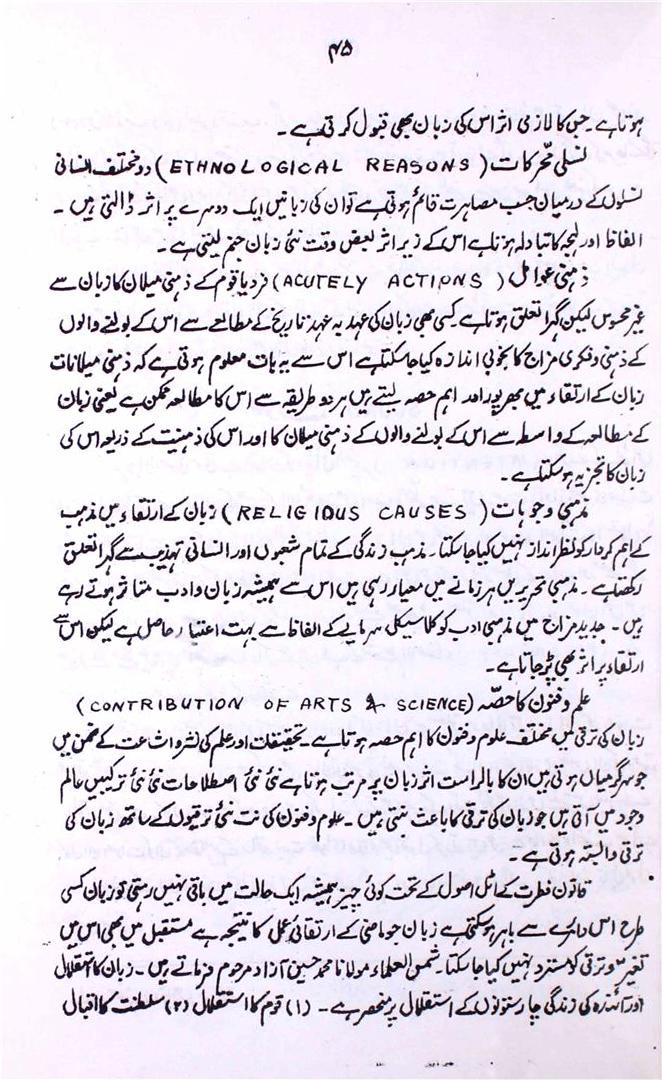 ۴۵
ہوتا ہے۔ جس کا لازمی اثر اس کی زبان بھی قبول کرتی ہے۔
نسلی محرکات (ETHNOLOGICAL REASONS) دو مختلف انسانی
نسلوں کے درمیان جب مصاہرت قائم ہوتی ہے تو ان کی زبانیں ایک دوسرے پر اثر ڈالتی ہیں۔
الفاظ اور لہجہ کا تبادلہ ہوتا ہے اس کے زیر اثر بعض وقت نئی زبان جنم لیتی ہے۔
ذہنی عوامل (ACUTELY ACTIONS) فرد یا قوم کے ذہنی میلان کا زبان سے
غیر محسوس لیکن گہرا تعلق ہوتا ہے کسی بھی زبان کی عہد بہ عہد تاریخ کے مطالعے سے اس کے بولنے والوں
کے ذہنی و فکری مزاج کا بخوبی اندازہ کیا جا سکتا ہے اس سے یہ بات معلوم ہوتی ہے کہ ذہنی میلانات
زبان کے ارتقاء میں بھرپور اور اہم حصہ لیتے ہیں ہر دو طریقے سے اس کا مطالعہ ممکن ہے یعنی زبان
کے مطالعہ کے واسطہ سے اس کے بولنے والوں کے ذہنی میلان کا اور اس کی ذہنیت کے ذریعہ اس کی
زبان کا تجزیہ ہو سکتا ہے۔
مذہبی وجوہات (RELIGIOUS CAUSES) زبان کے ارتقاء میں مذہب
کے اہم کردار کو نظر انداز نہیں کیا جا سکتا۔ مذہب زندگی کے تمام شعبوں اور انسانی تہذیب سے گہرا تعلق
رکھتا ہے۔ مذہبی تحریریں ہر زمانے میں معیار رہی ہیں اس سے ہمیشہ زبان و ادب متاثر ہوتے رہے
ہیں۔ جدید مزاج میں مذہبی ادب کو کلاسیکی سرمایے کے الفاظ سے بہت اعتبار حاصل ہے لیکن اس سے
ارتقاء پر اثر بھی پڑ جاتا ہے۔
علم و فنون کا حصّہ (CONTRIBUTION OF ARTS & SCIENCE)
زبان کی ترقی میں مختلف علوم و فنون کا اہم حصہ ہوتا ہے۔ تحقیقات اور علم کی نشر و اشاعت کے ضمن میں
جو سرگرمیاں ہوتی ہیں ان کا بالراست اثر زبان پر مرتب ہوتا ہے نئی نئی اصطلاحات نئی نئی ترکیبیں عالم
وجود میں آتی ہیں جو زبان کی ترقی کا باعث بنتی ہیں۔ علوم و فنون کی نت نئی ترقیوں کے ساتھ زبان کی
ترقی وابستہ ہوتی ہے۔
قانون فطرت کے اٹل اصول کے تحت کوئی چیز ہمیشہ ایک حالت میں باقی نہیں رہتی تو زبان کسی
طرح اس دائرے سے باہر ہو سکتی ہے زبان جو ماضی کے ارتقائی عمل کا نتیجہ ہے مستقبل میں بھی اس میں
تغیر و ترقی کو مسترد نہیں کیا جا سکتا۔ شمس العلماء مولانا محمد حسین آزاد مرحوم فرماتے ہیں۔ زبان کا استقلال
اور آئندہ کی زندگی چار ستونوں کے استقلال پر منحصر ہے۔ (۱) قوم کا استقلال (۲) سلطنت کا اقبال